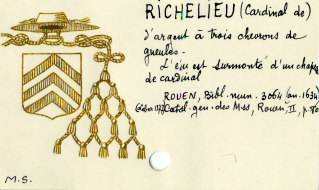 RICHELIEU (Cardinal de)
d'argent à trois chevrons de
gueules.
L'écu est surmonté d'un chapeau
de cardinal
ROUEN, Bibl. mun. 3064 (an. 1634)
Catal. gen. des Mss, Rouen, II, p. 
M.S.